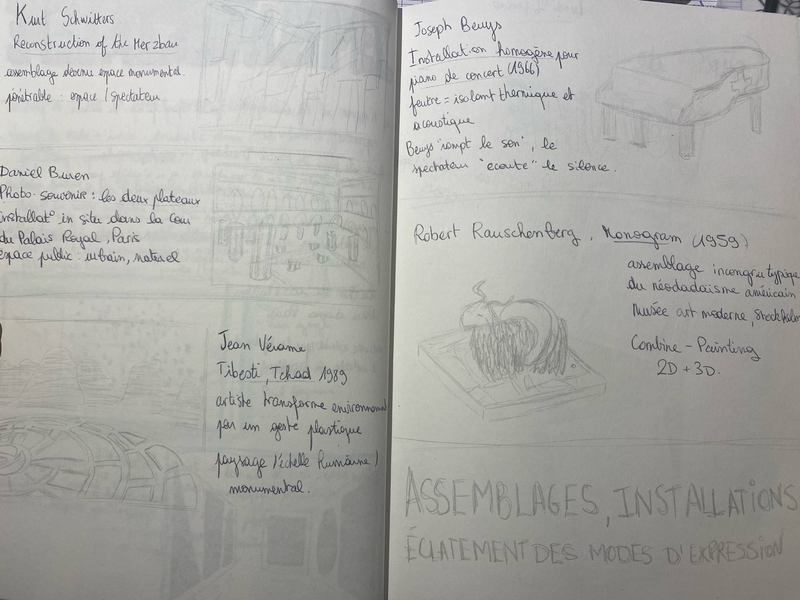 Kurt Schwitters
Reconstruction of the Merzbau
assemblage devenu espace monumental.
pénétrable : espace / spectateur
Daniel Buren
Photo-souvenir : les deux plateaux
installat° in situ dans la Cour
du Palais Royal, Paris
espace public : urbain, naturel
Jean Vérame
Tibesti, Tchad 1989
artiste transforme environnement
par un geste plastique
paysage l'échelle humaine /
monumental.
Joseph Beuys
Installation homogène pour
piano de concert (1966)
feutre = isolant thermique et
acoustique
Beuys "rompt le son", le
spectateur "écoute" le silence.
Robert Rauschenberg, Monogram (1959)
assemblage incongru typique
du néodadaisme américain
Musée art moderne, Stockholm
Combine-Painting
2D + 3D.
ASSEMBLAGES, INSTALLATIONS
ÉCLATEMENT DES MODES D'EXPRESSION